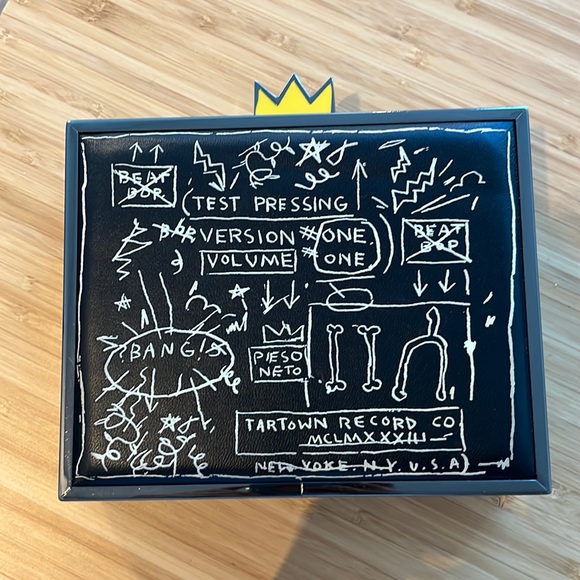 BEAT
BOP
TEST PRESSING
BOP VERSION #ONE
VOLUME #ONE
BEAT
BOP
BANG!
PIESO
NETO
TARTOWN RECORD CO
MCLMXXXIII
NEW YORK. N.Y. U.S.A